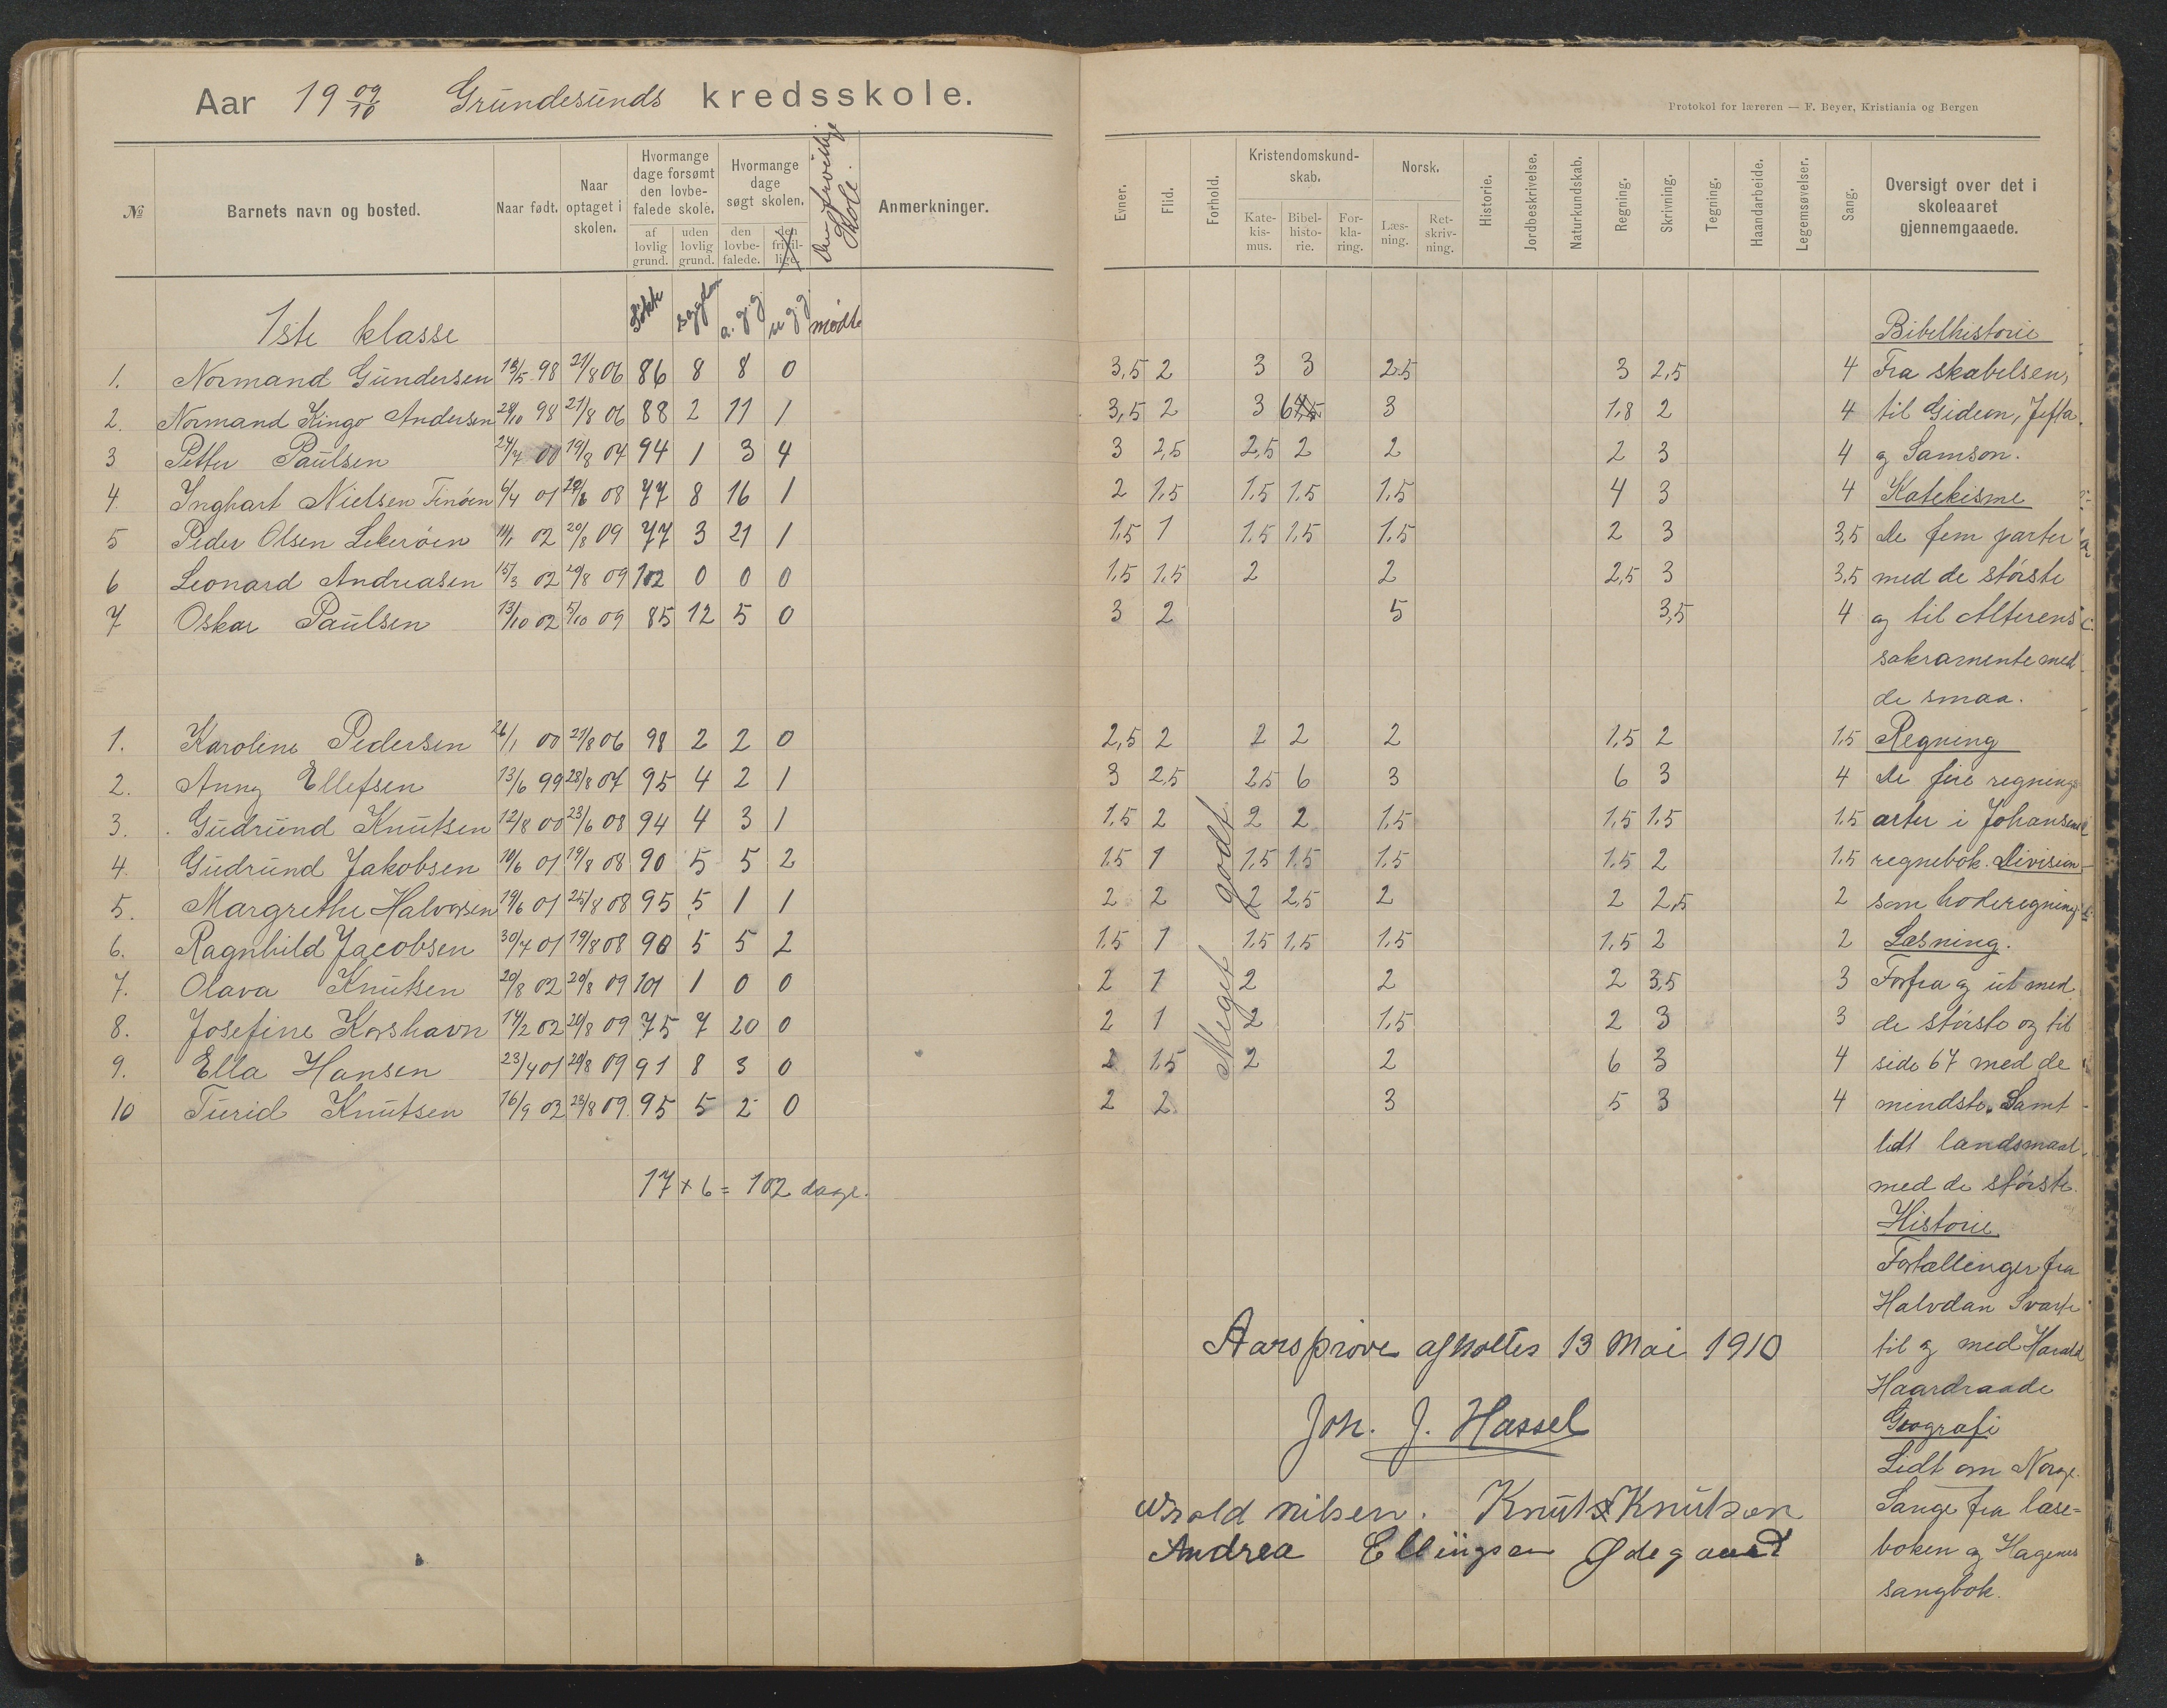 Aar 19 09/10 Grundesunds kredsskole.
№ Barnets navn og bosted. Naar født. Naar optaget i skolen. Hvormange dage forsømt den lovbefalede skole. Hvormange dage søgt skolen. Den frivillige Skole. Anmerkninger.
af lovlig grund. uden lovlig grund. den lovbefalede. den frivillige.
1ste klasse Søkt sygdom a. g. g. u g g mødte
1. Normand Gundersen 98 21/8 06 86 8 8 0
2. Normand Kingo Andersen 28/10 98 21/8 06 88 2 11 1
3 Petter Paulsen 24/7 00 19/8 07 94 1 3 4
4. Inghart Nielsen 6/4 01 08 77 8 16 1
5 Peder Olsen Lekerøen 02 20/8 09 77 3 21 1
6 Leonard Andreasen 15/3 02 20/8 09 102 0 0 0
7 Oskar Paulsen 13/10 02 5/10 09 85 12 5 0
1. Karoline Pedersen 26/1 00 21/8 06 98 2 2 0
2. Anny Ellefsen 13/6 99 28/8 07 95 4 2 1
3. Gudrund Knutsen 12/8 00 23/6 08 94 4 3 1
4. Gudrund Jakobsen 10/6 01 19/8 08 90 5 5 2
5. Margrethe Halvorsen 19/6 01 25/8 08 95 5 1 1
6. Ragnhild Jacobsen 30/7 01 19/8 08 90 5 5 2
7. Olava Knutsen 20/8 02 20/8 09 101 1 0 0
8. Josefine Korshavn 14/2 02 20/8 09 75 7 20 0
9. Ella Hansen 23/4 01 20/8 09 91 8 3 0
10 Turid Knutsen 16/9 02 23/8 09 95 5 2 0
17 × 6 = 102 dage.
Protokol for læreren — F. Beyer, Kristiania og Bergen
Evner. Flid. Forhold. Kristendomskundskab. Norsk. Historie. Jordbeskrivelse. Naturkundskab. Regning. Skrivning. Tegning. Haandarbeide. Legemsøvelser. Sang. Oversigt over det i skoleaaret gjennemgaaede.
Katekismus. Bibelhistorie. Forklaring. Læsning. Retskrivning.
Bibelhistorie
3,5 2 3 3 2,5 3 2,5 4 Fra skabelsen,
3,5 2 3 3 1,8 2 4 til Gideon, Jefta
3 2,5 2,5 2 2 2 3 4 og Samson.
2 1,5 1,5 1,5 1,5 4 3 4 Katekisme
1,5 1 1,5 1,5 1,5 2 3 3,5 de fem parter
1,5 1,5 2 2 2,5 3 3,5 med de største
3 2 5 3,5 4 og til Alterens
sakramente med
de smaa.
2,5 2 2 2 2 1,5 2 1,5 Regning
3 2,5 2,5 6 3 6 3 4 De fire regnings
1,5 2 2 2 1,5 1,5 1,5 1,5 arter i Johansens
1,5 1 1,5 1,5 1,5 1,5 2 1,5 regnebok. Division
2 2 2 2,5 2 2 2,5 2 som hoderegning
1,5 1 1,5 1,5 1,5 1,5 2 2 Læsning.
2 1 2 2 2 3,5 3 Forfra og ut med
2 1 2 1,5 2 3 3 de største og til
2 1,5 2 2 6 3 4 side 67 med de
2 2 3 5 3 4 mindste. Samt
Meget godt
lidt landsmaal
med de største.
Historie
Fortællinger fra
Halvdan Svarte
til og med Harald
Haardraade
Geografi
Lidt om Norge.
Sange fra læse-
boken og Hagenes
sangbok.
Aarsprøve afholtes 13 Mai 1910
Joh. J. Hassel
nilsen. Knut Knutson
Andrea Ellingsen Ødegaard